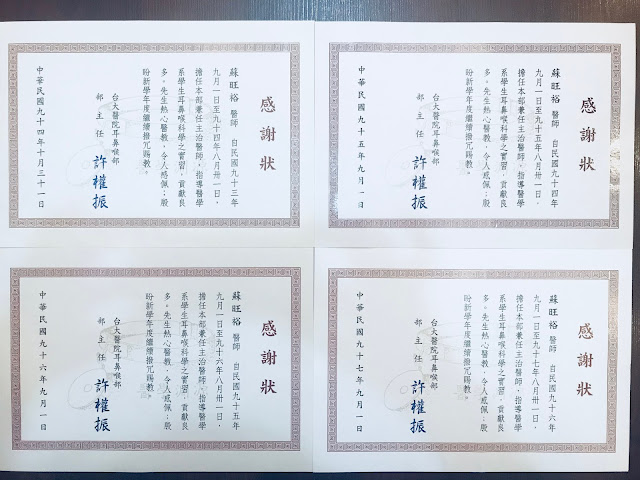 感謝狀
蘇旺裕 醫師 自民國九十三年
九月一日至九十四年八月卅一日，
擔任本部兼任主治醫師，指導醫學
系學生耳鼻喉科學之實習，貢獻良
多。先生熱心醫教，令人感佩；殷
盼新學年度繼續撥冗賜教。
台大醫院耳鼻喉部
部主任 許權振
中華民國九十四年十月三十一日
感謝狀
蘇旺裕 醫師 自民國九十四年
九月一日至九十五年八月卅一日，
擔任本部兼任主治醫師，指導醫學
系學生耳鼻喉科學之實習，貢獻良
多。先生熱心醫教，令人感佩；殷
盼新學年度繼續撥冗賜教。
台大醫院耳鼻喉部
部主任 許權振
中華民國九十五年九月一日
感謝狀
蘇旺裕 醫師 自民國九十五年
九月一日至九十六年八月卅一日，
擔任本部兼任主治醫師，指導醫學
系學生耳鼻喉科學之實習，貢獻良
多。先生熱心醫教，令人感佩；殷
盼新學年度繼續撥冗賜教。
台大醫院耳鼻喉部
部主任 許權振
中華民國九十六年九月一日
感謝狀
蘇旺裕 醫師 自民國九十六年
九月一日至九十七年八月卅一日，
擔任本部兼任主治醫師，指導醫學
系學生耳鼻喉科學之實習，貢獻良
多。先生熱心醫教，令人感佩；殷
盼新學年度繼續撥冗賜教。
台大醫院耳鼻喉部
部主任 許權振
中華民國九十七年九月一日